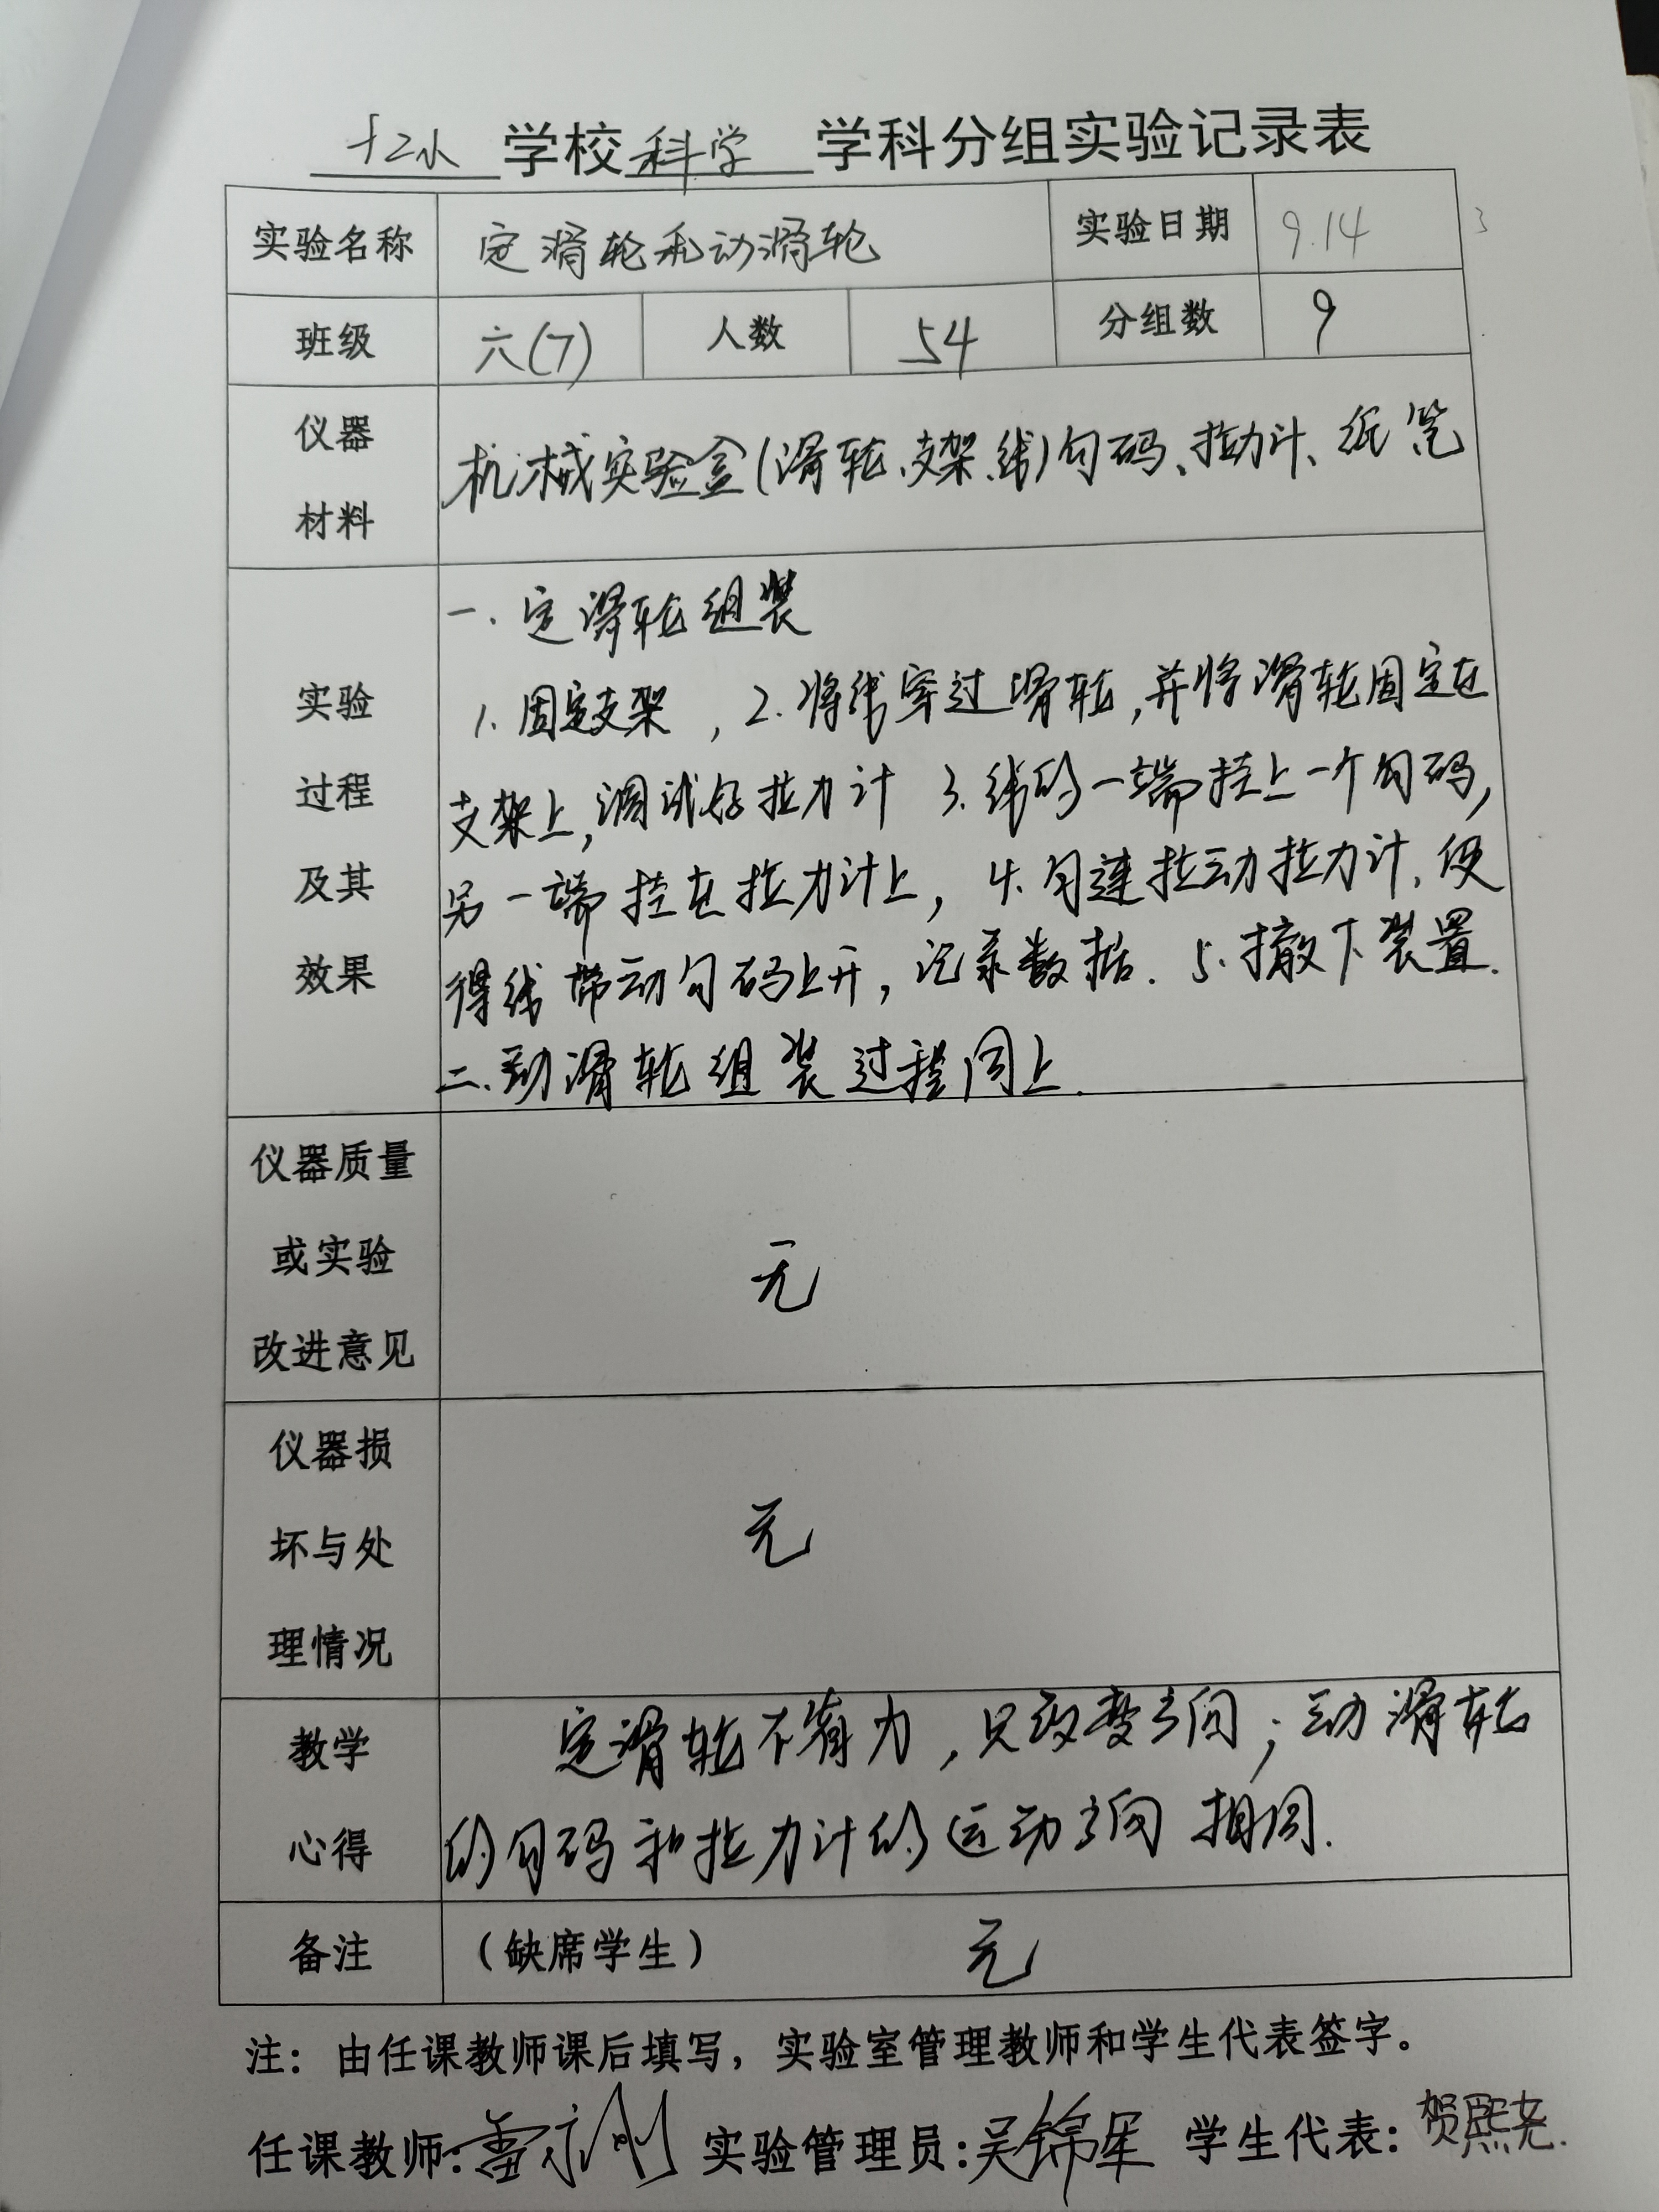 十二小 学校 科学 学科分组实验记录表
实验名称 定滑轮和动滑轮 实验日期 9.14
3
班级 六(7) 人数 54 分组数 9
仪器
材料
机械实验盒(滑轮、支架、线)勾码、拉力计、纸笔
实验
过程
及其
效果
一. 定滑轮组装
1. 固定支架，2. 将线穿过滑轮,并将滑轮固定在
支架上,调试好拉力计 3. 线的一端挂上一个勾码,
另一端挂在拉力计上, 4. 匀速拉动拉力计,使
得线带动勾码上升, 记录数据. 5. 撤下装置.
二. 动滑轮组装过程同上.
仪器质量
或实验
改进意见
无
仪器损
坏与处
理情况
无
教学
心得
定滑轮不省力, 只改变方向; 动滑轮
的勾码和拉力计的运动方向相同.
备注 (缺席学生) 无
注：由任课教师课后填写，实验室管理教师和学生代表签字。
任课教师: 雷永刚 实验管理员: 吴锦军 学生代表: 贺熙尧.